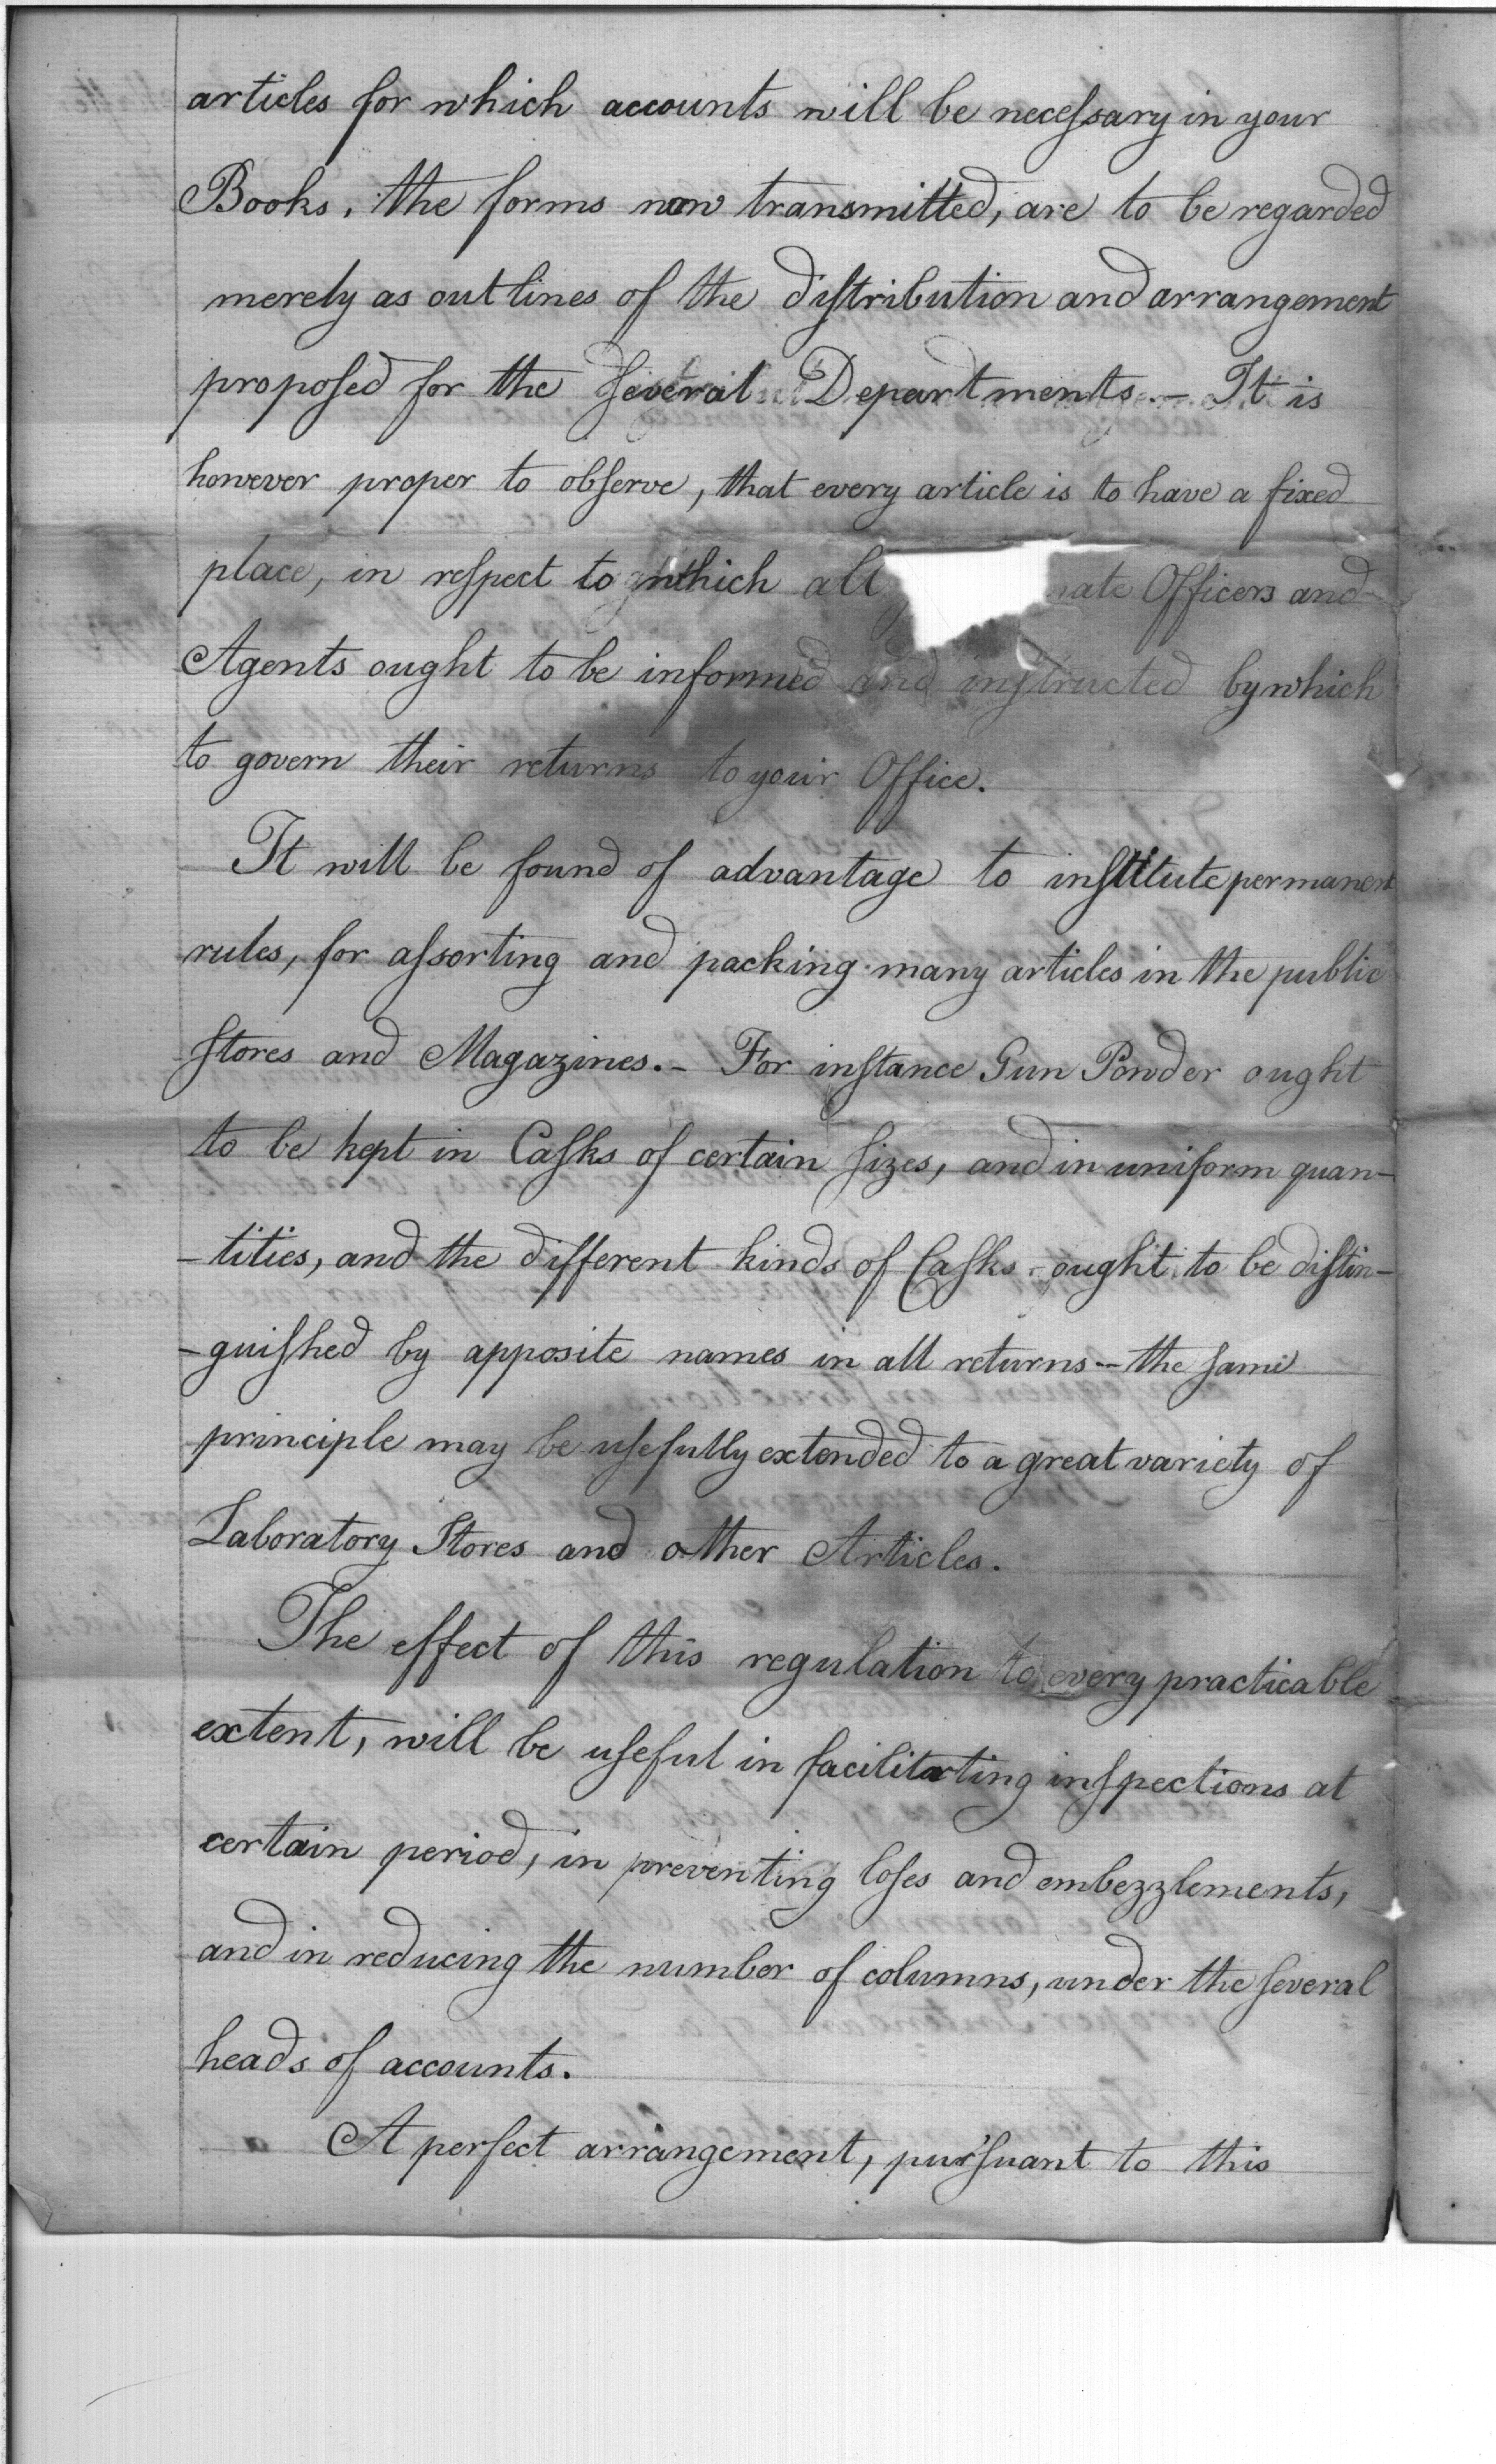 articles for which accounts will be necessary in your
Books, the forms now transmitted, are to be regarded
merely as out lines of the distribution and arrangement
proposed for the several Departments.– It is
however proper to observe, that every article is to have a fixed
place, in respect to which all nate Officers and
Agents ought to be informed and instructed by which
to govern their returns to your Office.
It will be found of advantage to institute permanent
rules, for assorting and packing many articles in the public
stores and Magazines.– For instance Gun Powder ought
to be kept in Casks of certain sizes, and in uniform quan–
–tities, and the different kinds of Casks ought to be distin–
–guished by apposite names in all returns – the same
principle may be usefully extended to a great variety of
Laboratory Stores and other Articles.
The effect of this regulation to every practicable
extent, will be useful in facilitating inspections at
certain period, in preventing loses and embezzlements,
and in reducing the number of columns, under the several
heads of accounts.
A perfect arrangement, pursuant to this